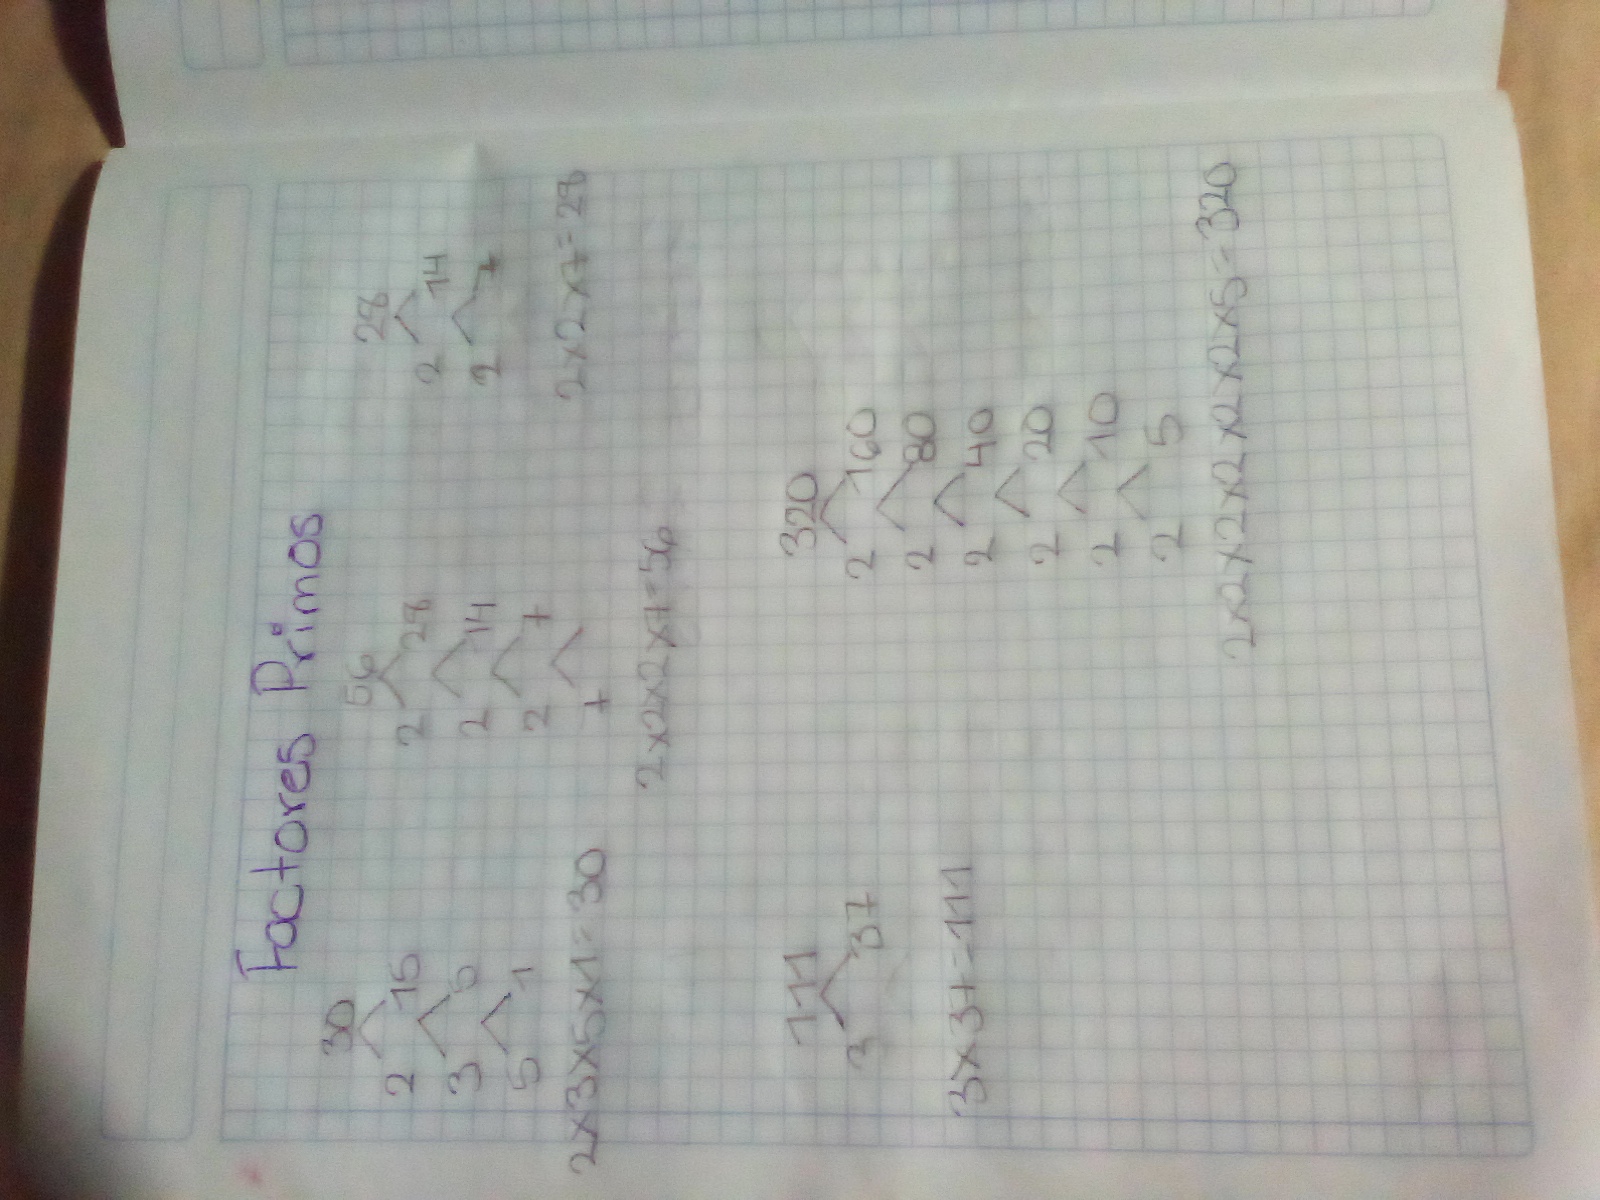 Factores Primos
30
2 15
3 5
5 1
2x3x5x1=30
56
2 28
2 14
2 7
7
2x2x2x7=56
28
2 14
2 7
2x2x7=28
111
3 37
3x37=111
320
2 160
2 80
2 40
2 20
2 10
2 5
2x2x2x2x2x2x5=320